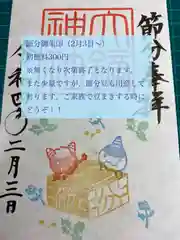 節分奉拝
節分御朱印（2月3日〜）
初穂料300円
※無くなり次第終了となります。
また少量ですが、節分豆も用意して
おります。ご家族で豆まきする時に
どうぞ！！
二月三日